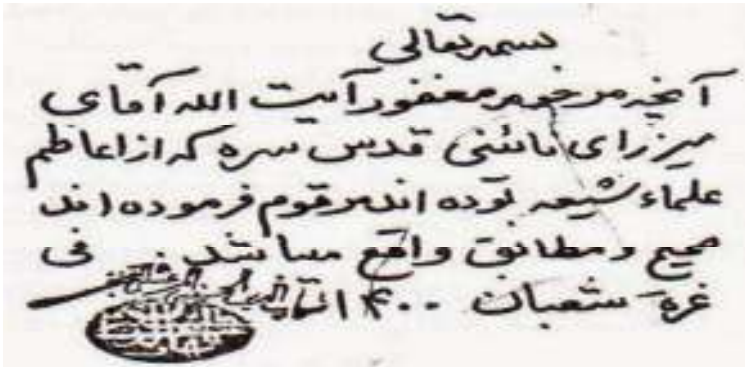 بسمه تعالی
آنچه مرحوم مغفور آیت الله آقای
میرزای نائنی قدس سره که از اعاظم
علماء شیعه بوده اند مرقوم فرموده اند
صحیح و مطابق واقع میباشد. فی
غرة شعبان ۱۴۰۰